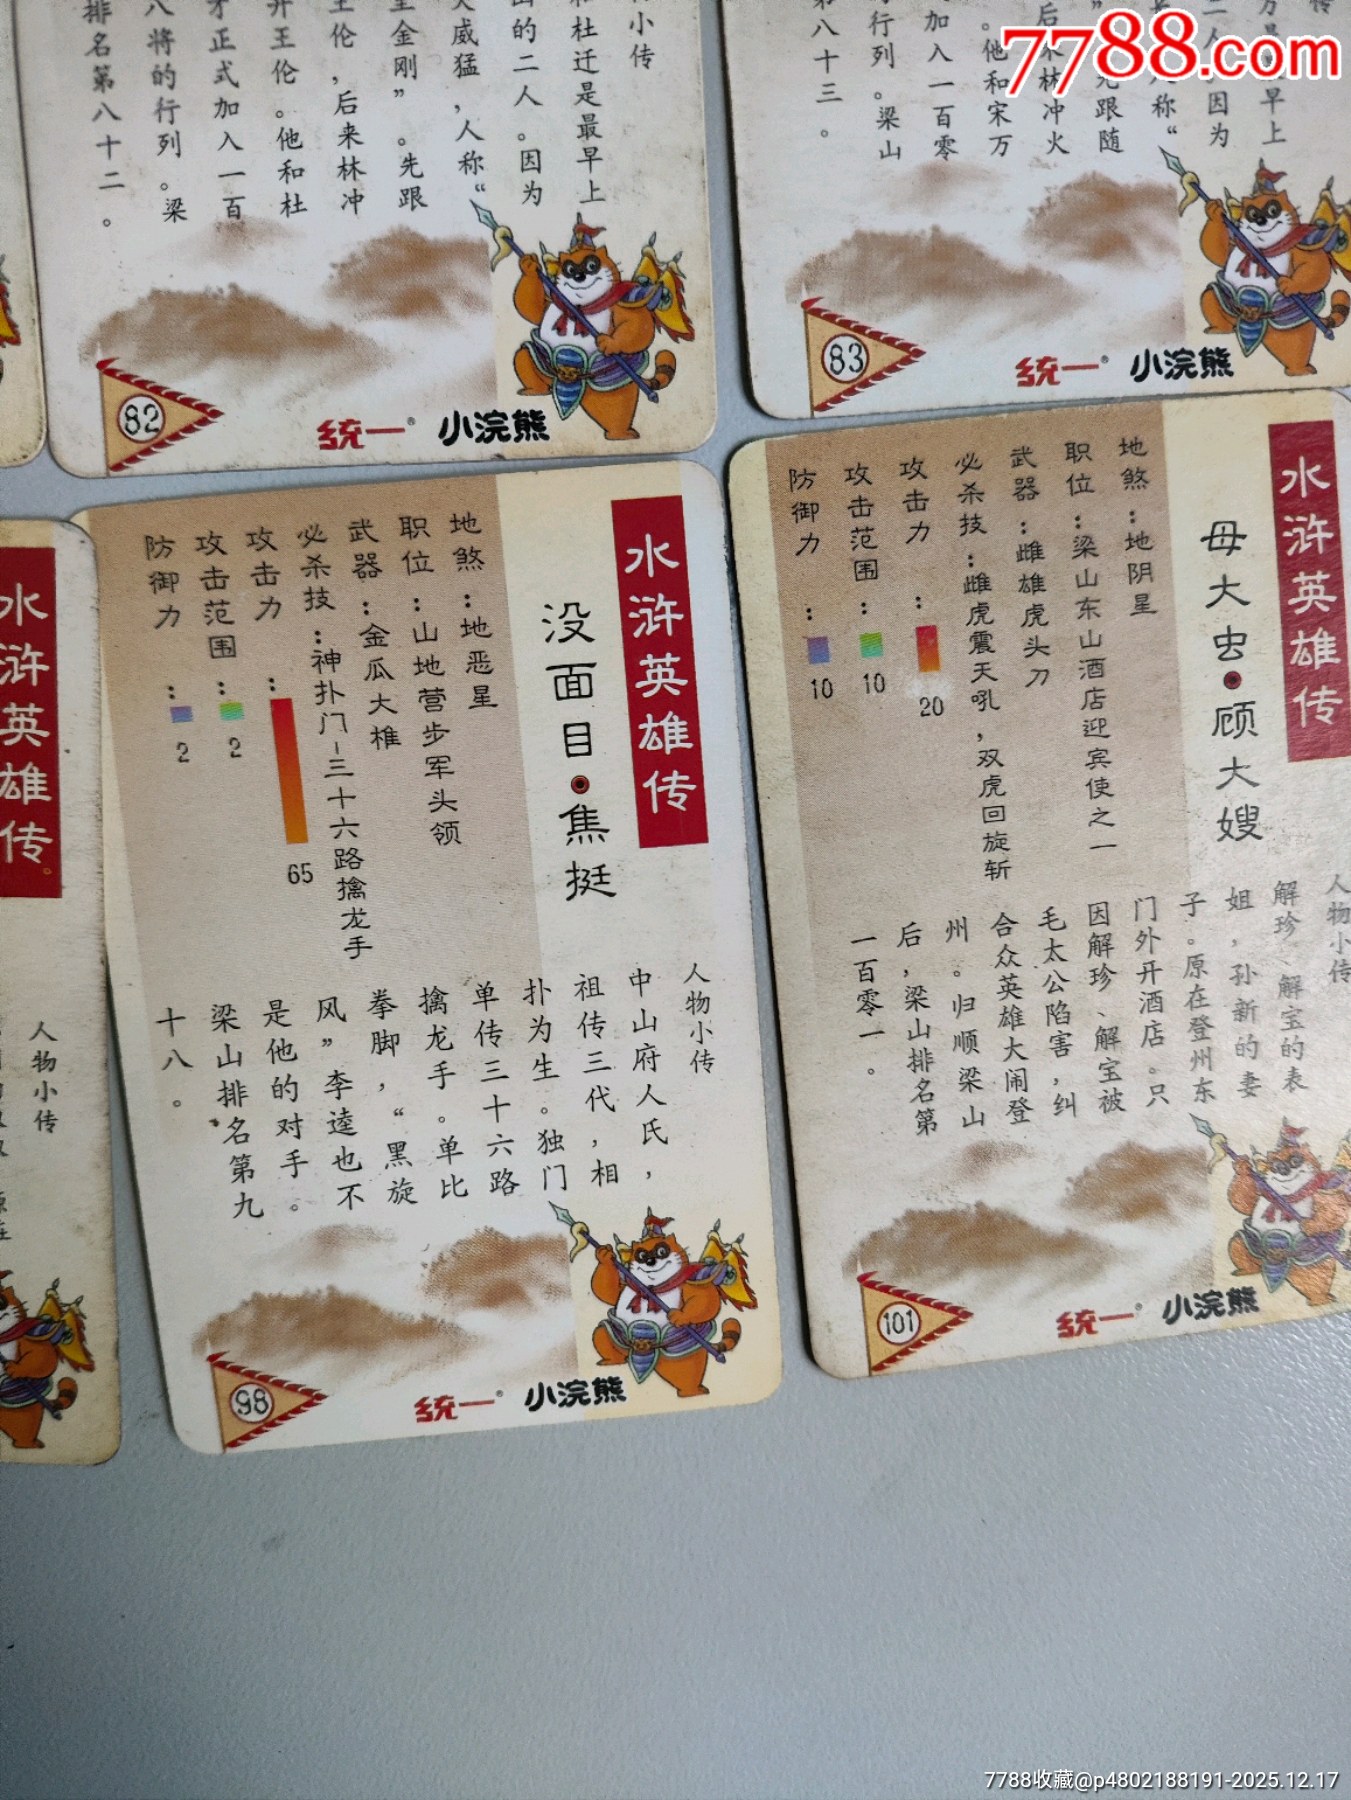 7788.com
小传
和杜迁是最早上
的二人。因为
大威猛,人称“
金刚”。先跟
王伦,后来林冲
开王伦。他和杜
正式加入一百
八将的行列。梁
排名第八十二。
82
统一 小浣熊
传
早上
二人。因为
称“
先跟随
后来林冲火
。他和宋万
加入一百零
行列。梁山
第八十三。
83
统一 小浣熊
水浒英雄传
人物小传
水浒英雄传
没面目·焦挺
地煞:地恶星
职位:山地营步军头领
武器:金瓜大椎
必杀技:神扑门-三十六路擒龙手
攻击力:65
攻击范围:2
防御力:2
人物小传
中山府人氏,
祖传三代,相
扑为生。独门
单传三十六路
擒龙手。单比
拳脚,“黑旋
风”李逵也不
是他的对手。
梁山排名第九
十八。
98
统一 小浣熊
水浒英雄传
母大虫·顾大嫂
地煞:地阴星
职位:梁山东山酒店迎宾使之一
武器:雌雄虎头刀
必杀技:雌虎震天吼,双虎回旋斩
攻击力:20
攻击范围:10
防御力:10
人物小传
解珍、解宝的表
姐,孙新的妻
子。原在登州东
门外开酒店。只
因解珍、解宝被
毛太公陷害,纠
合众英雄大闹登
州。归顺梁山
后,梁山排名第
一百零一。
101
统一 小浣熊
7788收藏@p4802188191-2025.12.17